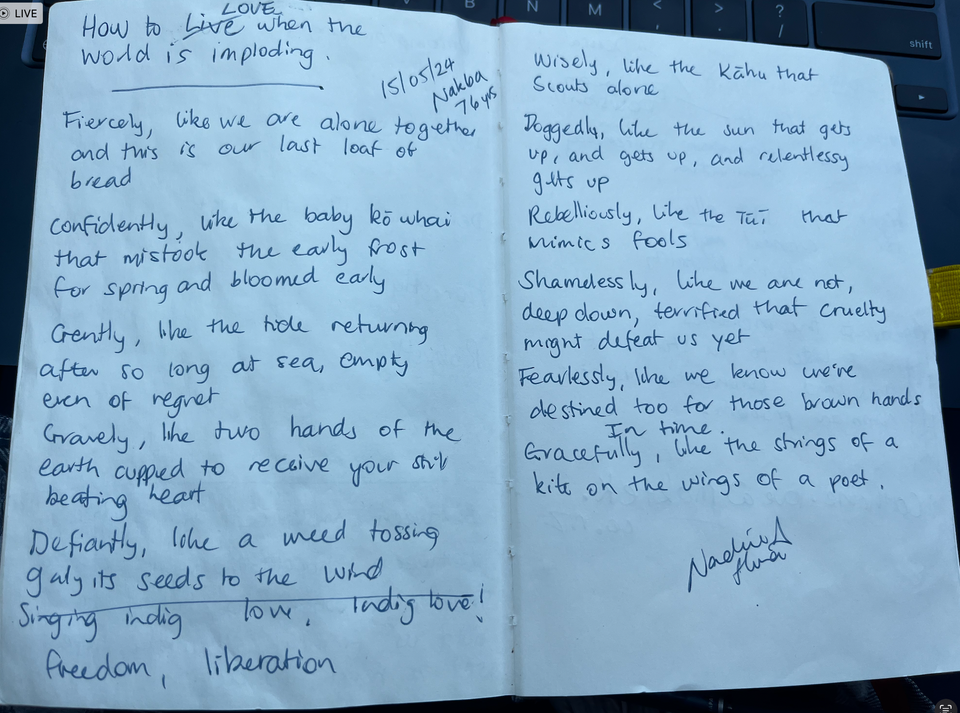 LIVE
LOVE
How to Live when the
world is imploding.
15/05/24
Nakba
76 yrs
Fiercely, like we are alone together
and this is our last loaf of
bread
Confidently, like the baby kōwhai
that mistook the early frost
for spring and bloomed early
Gently, like the tide returning
after so long at sea, empty
even of regret
Gravely, like two hands of the
earth cupped to receive your still
beating heart
Defiantly, like a weed tossing
galy its seeds to the wind
Singing indig love, Indig love!
freedom, liberation
Wisely, like the Kāhu that
Scouts alone
Doggedly, like the sun that gets
up, and gets up, and relentlessy
gets up
Rebelliously, like the Tūī that
mimics fools
Shamelessly, like we are not,
deep down, terrified that cruelty
might defeat us yet
Fearlessly, like we know we're
destined too for those brown hands
In time.
Gracefully, like the strings of a
kite on the wings of a poet.
B N M < > ?
, . /
shift